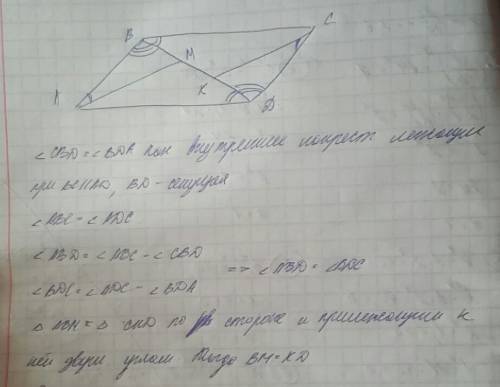 B
C
M
K
A
D
∠CBD = ∠BDA как внутренние накрест лежащие
при BC||AD, BD - секущая
∠ABC = ∠ADC
∠ABD = ∠ABC - ∠CBD
=> ∠ABD = ∠BDC
∠BDC = ∠ADC - ∠BDA
△ABM = △CKD по стороне и прилежащим к
ней двум углам Тогда BM=KD